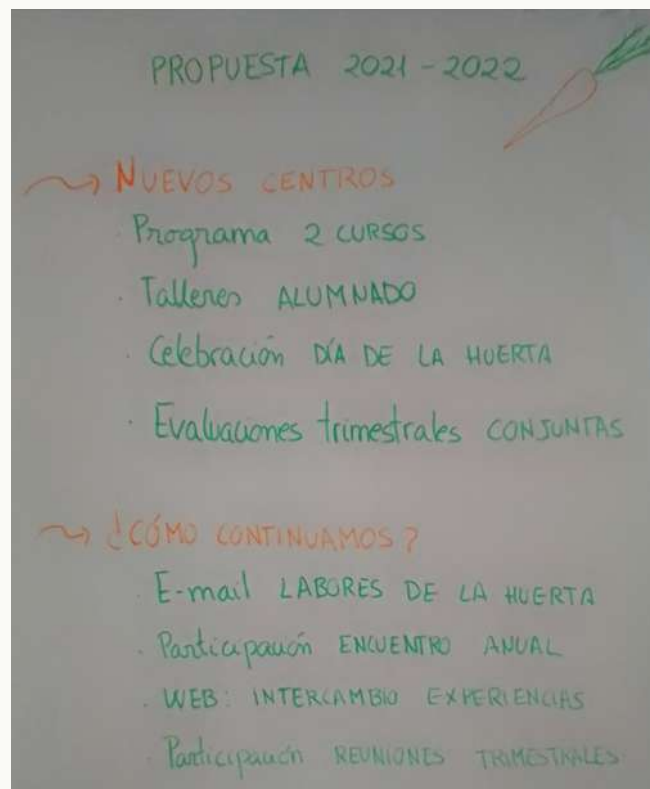 PROPUESTA 2021-2022
NUEVOS CENTROS
· Programa 2 CURSOS
· Talleres ALUMNADO
· Celebración DÍA DE LA HUERTA
· Evaluaciones trimestrales CONJUNTAS
¿CÓMO CONTINUAMOS?
· E-mail LABORES DE LA HUERTA
· Participación ENCUENTRO ANUAL
· WEB: INTERCAMBIO EXPERIENCIAS
· Participación REUNIONES TRIMESTRALES